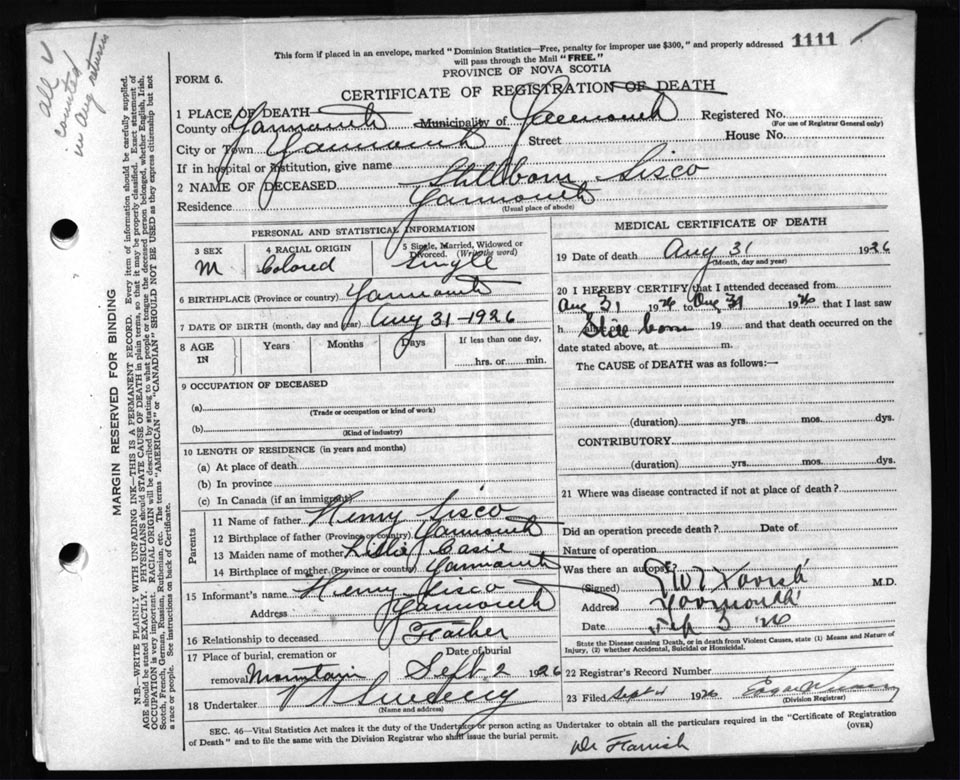 all
counted
in Aug return
This form if placed in an envelope, marked "Dominion Statistics—Free, penalty for improper use $300," and properly addressed
will pass through the Mail "FREE."
1111
PROVINCE OF NOVA SCOTIA
FORM 6.
CERTIFICATE OF REGISTRATION OF DEATH
1 PLACE OF DEATH
County of Yarmouth Municipality of Yarmouth Registered No.
(For use of Registrar General only)
City or Town Yarmouth Street House No.
If in hospital or institution, give name
2 NAME OF DECEASED Stillborn Sisco
Residence Yarmouth
(Usual place of abode)
PERSONAL AND STATISTICAL INFORMATION
3 SEX 4 RACIAL ORIGIN 5 Single, Married, Widowed or
Divorced. (Write the word)
M Colored Single
6 BIRTHPLACE (Province or country) Yarmouth
7 DATE OF BIRTH (month, day and year) Aug 31-1926
8 AGE IN Years Months Days If less than one day,
hrs. or min.
9 OCCUPATION OF DECEASED
(a)
(Trade or occupation or kind of work)
(b)
(Kind of industry)
10 LENGTH OF RESIDENCE (in years and months)
(a) At place of death
(b) In province
(c) In Canada (if an immigrant)
Parents
11 Name of father Henry Sisco
12 Birthplace of father (Province or country) Yarmouth
13 Maiden name of mother
14 Birthplace of mother (Province or country) Yarmouth
15 Informant's name Henry Sisco
Address Yarmouth
16 Relationship to deceased Father
17 Place of burial, cremation or Date of burial
removal Mountain Sept 2 1926
18 Undertaker V Sweeny
(Name and address)
MEDICAL CERTIFICATE OF DEATH
19 Date of death Aug 31 1926
(Month, day and year)
20 I HEREBY CERTIFY that I attended deceased from
Aug 31 1926 to Aug 31 1926 that I last saw
h Still born 19 and that death occurred on the
date stated above, at m.
The CAUSE of DEATH was as follows:—
(duration) yrs. mos. dys.
CONTRIBUTORY
(duration) yrs. mos. dys.
21 Where was disease contracted if not at place of death?
Did an operation precede death? Date of
Nature of operation
Was there an autopsy?
(Signed) M.D.
Address Yarmouth
Date Sep 3 '26
State the Disease causing Death, or in death from Violent Causes, state (1) Means and Nature of
Injury, (2) whether Accidental, Suicidal or Homicidal.
22 Registrar's Record Number
23 Filed Sept 4 1926
(Division Registrar)
SEC. 46—Vital Statistics Act makes it the duty of the Undertaker or person acting as Undertaker to obtain all the particulars required in the "Certificate of Registration
of Death" and to file the same with the Division Registrar who shall issue the burial permit.
(OVER)
MARGIN RESERVED FOR BINDING
N.B.—WRITE PLAINLY WITH UNFADING INK—THIS IS A PERMANENT RECORD. Every item of information should be carefully supplied.
AGE should be stated EXACTLY. PHYSICIANS should STATE CAUSE OF DEATH in plain terms, so that it may be properly classified. Exact statement of
OCCUPATION is very important. RACIAL ORIGIN will be described by stating to what people or tongue the deceased person belonged, whether English, Irish,
Scotch, French, German, Russian, Ruthenian, etc. The terms "AMERICAN" or "CANADIAN" SHOULD NOT BE USED as they express citizenship but not
a race or people. See instructions on back of Certificate.